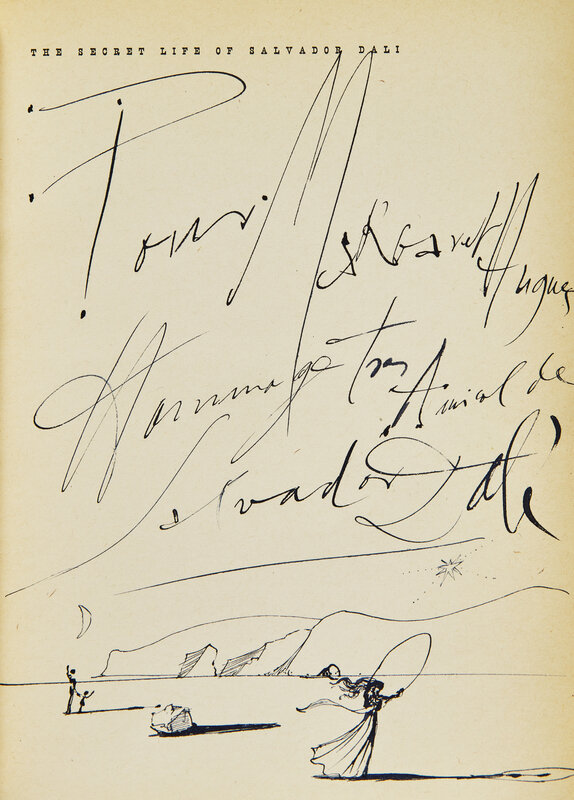 THE SECRET LIFE OF SALVADOR DALI
Pour M
Hugues
Hommage tres Amical de
Salvador Dalí